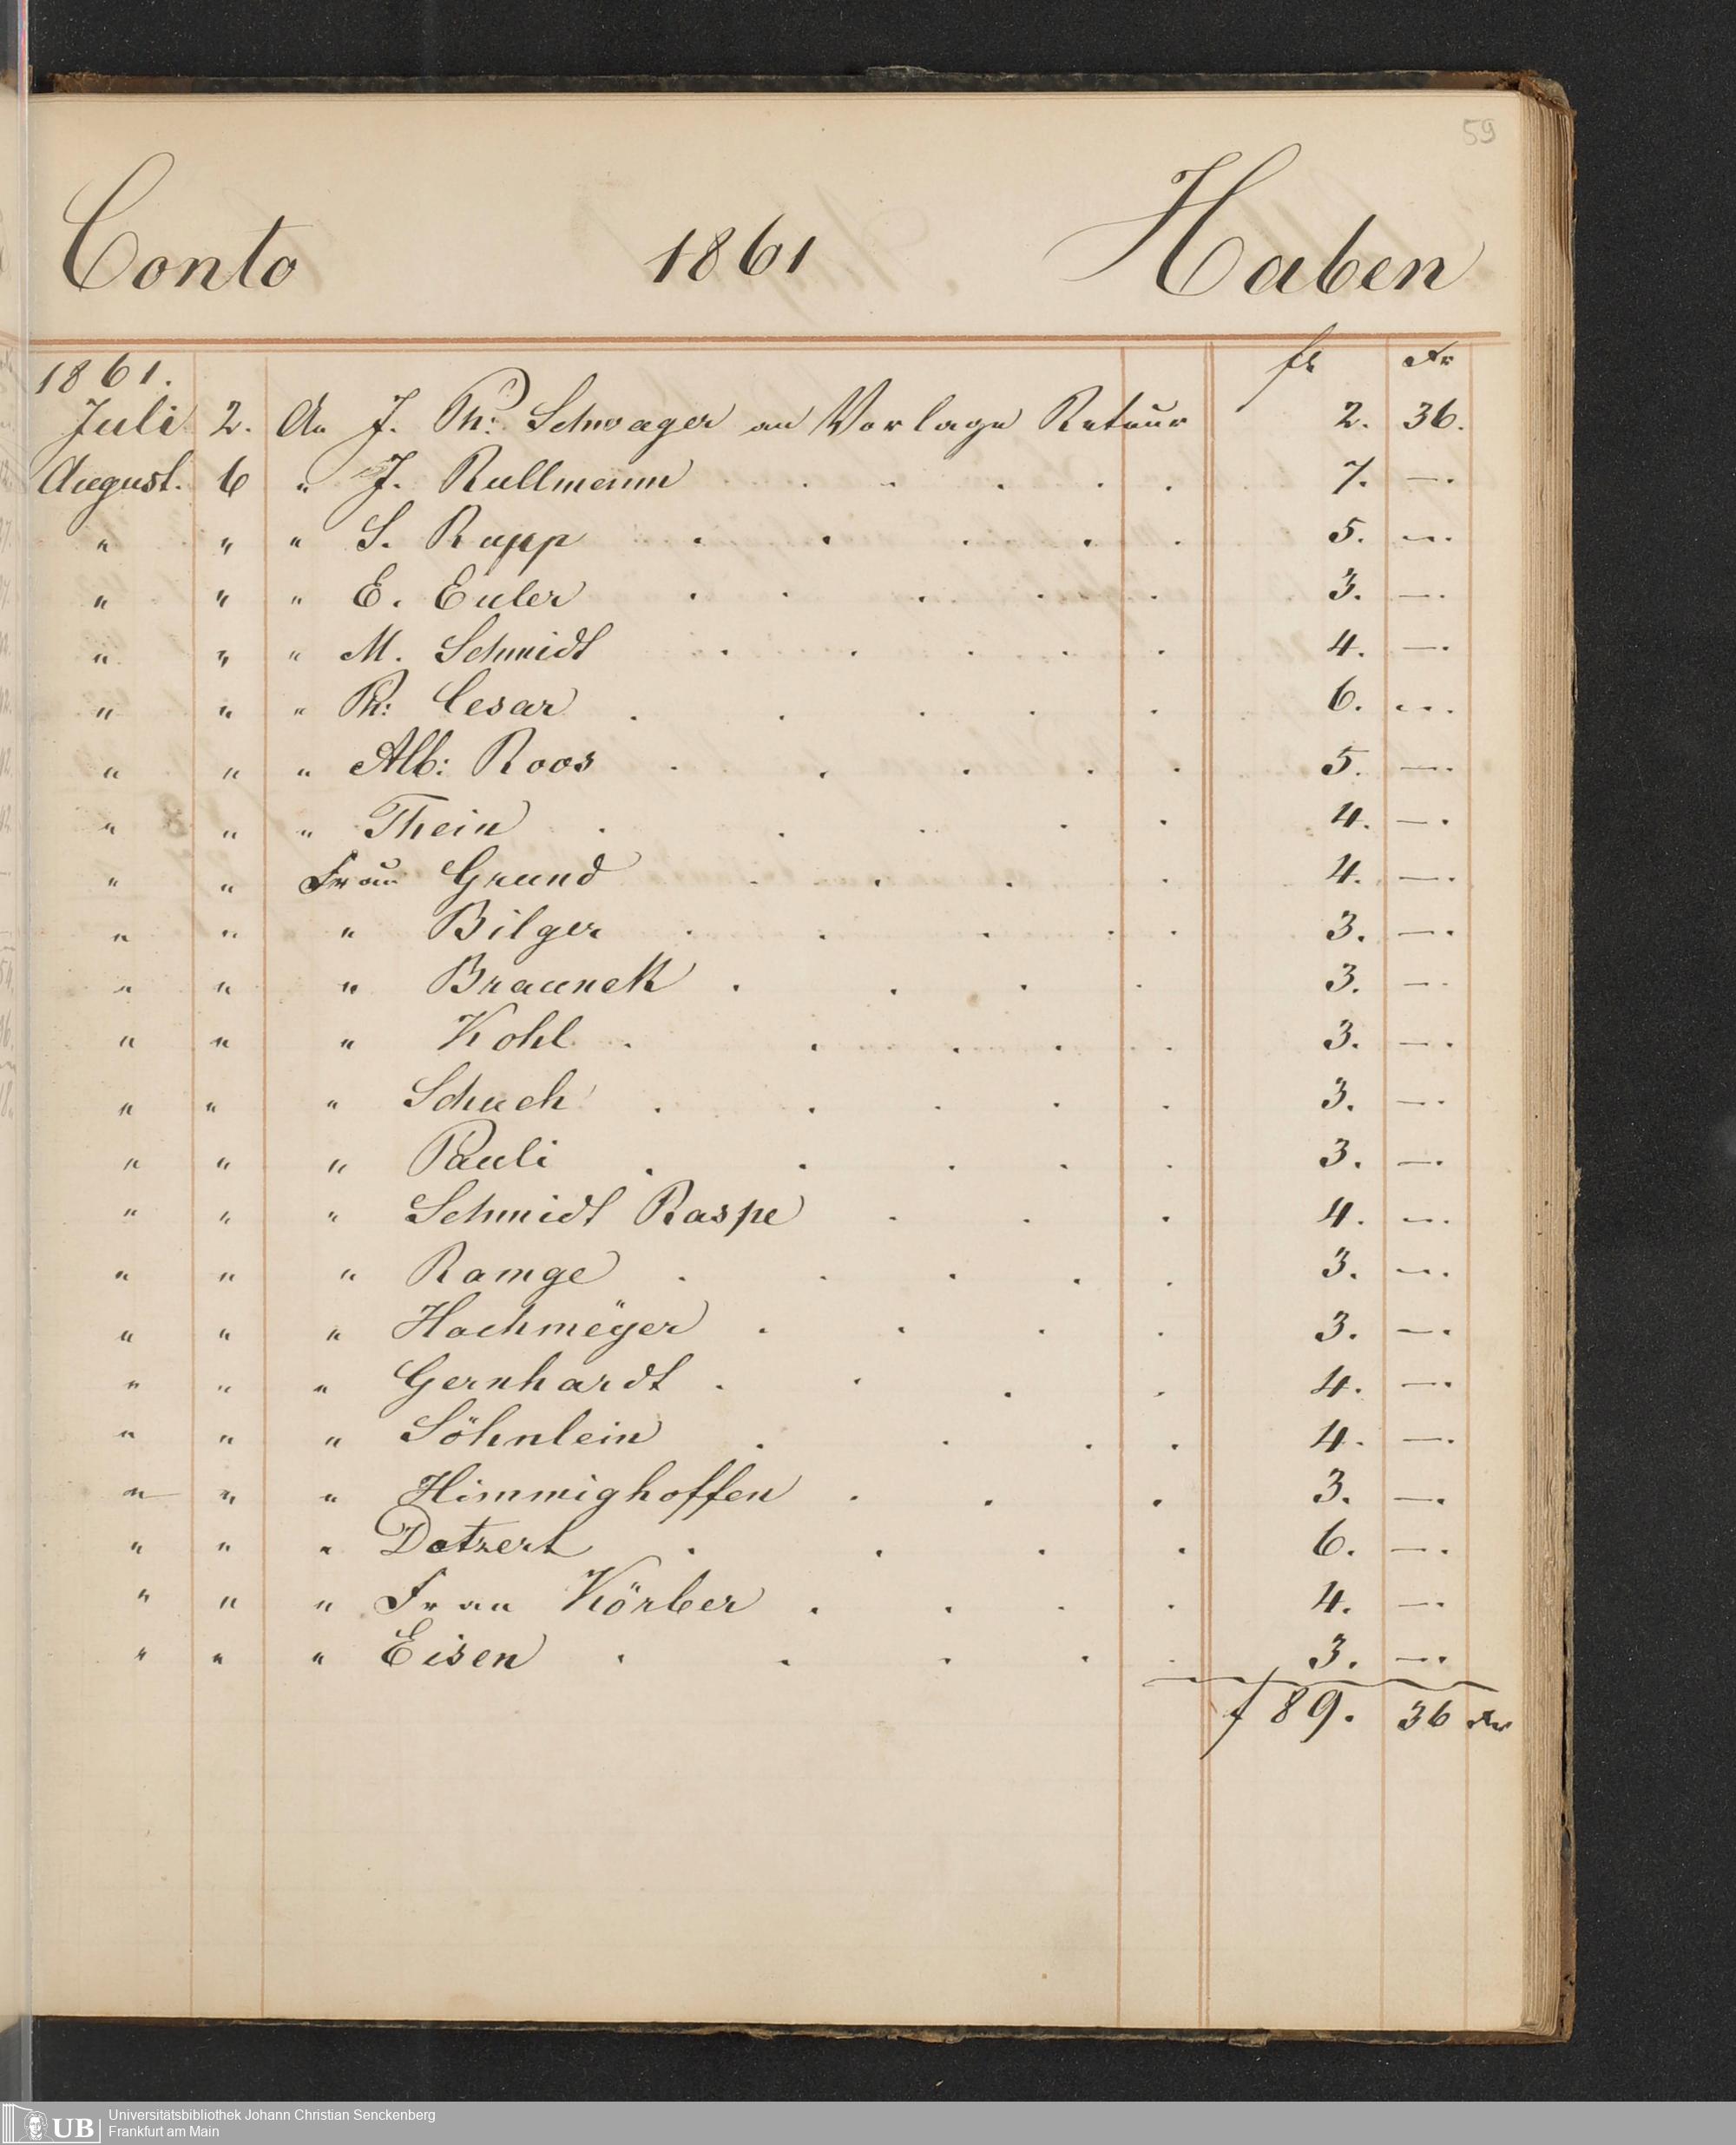 59
Conto 1861 Haben
1861. fl Xr
Juli 2. An J. Ph: Schwager an Vorlage Retour 2. 36.
August. 6 " J. Rullmann . . . . . 7. —.
" " " S. Rapp . . . . . 5. —.
" " " E. Euler . . . . . 3. —.
" " " M. Schmidt . . . . . 4. —.
" " " Ph: Cesar . . . . . 6. —.
" " " Alb: Roos . . . . . 5. —.
" " " Thein . . . . . 4. —.
" " Frau Grund . . . . 4. —.
" " " Bilger . . . . . 3. —.
" " " Brauneck . . . . 3. —.
" " " Kohl . . . . . 3. —.
" " " Schuch . . . . . 3. —.
" " " Pauli . . . . . 3. —.
" " " Schmidt Raspe . . . 4. —.
" " " Ramge . . . . . 3. —.
" " " Hachmeÿer . . . . 3. —.
" " " Gernhardt . . . . 4. —.
" " " Söhnlein . . . . 4. —.
" " " Himmighoffen . . . 3. —.
" " " Dotzert . . . . 6. —.
" " " Frau Körber . . . . 4. —.
" " " Eisen . . . . . 3. —.
f 89. 36 Xr
UB
Universitätsbibliothek Johann Christian Senckenberg
Frankfurt am Main